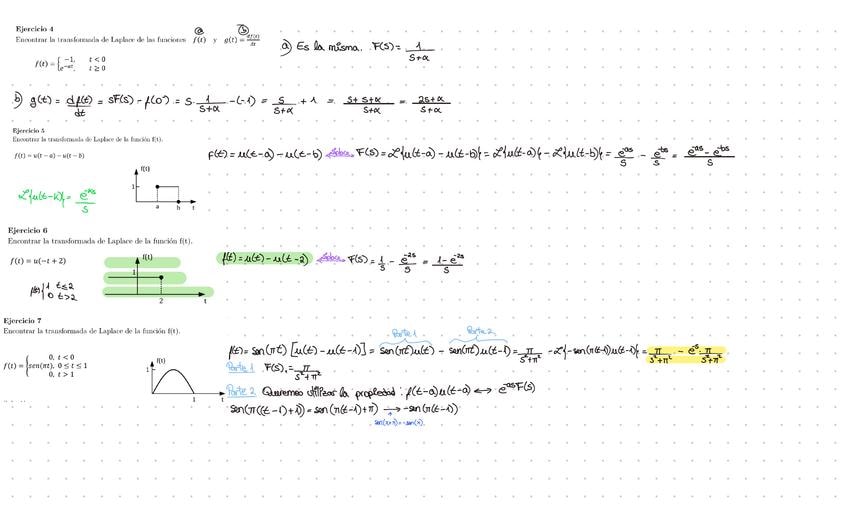 Ejercicio 4
a b
Encontrar la transformada de Laplace de las funciones f(t) y g(t) = df(t)/dt
f(t) = { -1, t < 0
e^{-αt}, t ≥ 0
a) Es la misma. F(s) = 1/(s+α)
b) g(t) = df(t)/dt = sF(s) - f(0⁻) = s · 1/(s+α) - (-1) = s/(s+α) + 1 = (s+s+α)/(s+α) = (2s+α)/(s+α)
Ejercicio 5
Encontrar la transformada de Laplace de la función f(t).
f(t) = u(t - a) - u(t - b)
F(t) = u(t-a) - u(t-b) F(s) = ℒ{u(t-a) - u(t-b)} = ℒ{u(t-a)} - ℒ{u(t-b)} = e^{-as}/s - e^{-bs}/s = (e^{-as} - e^{-bs})/s
ℒ{u(t-k)} = e^{-ks}/s
f(t)
1
a b t
Ejercicio 6
Encontrar la transformada de Laplace de la función f(t).
f(t) = u(-t + 2)
f(t) = u(t) - u(t-2) F(s) = 1/s - e^{-2s}/s = (1-e^{-2s})/s
f(t)
1
2 t
f(t) { 1 t≤2
0 t>2
Ejercicio 7
Encontrar la transformada de Laplace de la función f(t).
f(t) = { 0, t < 0
sen(πt), 0 ≤ t ≤ 1
0, t > 1
f(t)
1
1 t
Parte 1 Parte 2
f(t) = sen(πt) [u(t) - u(t-1)] = sen(πt)u(t) - sen(πt)u(t-1) = π/(s²+π²) - ℒ{-sen(π(t-1))u(t-1)} = π/(s²+π²) - e^{-s} · π/(s²+π²)
Parte 1 F(s) = π/(s²+π²)
Parte 2 Queremos utilizar la propiedad: f(t-a)u(t-a) ⟷ e^{-as}F(s)
sen(π((t-1)+1)) = sen(π(t-1)+π) → -sen(π(t-1))
sen(x+π) = -sen(x)